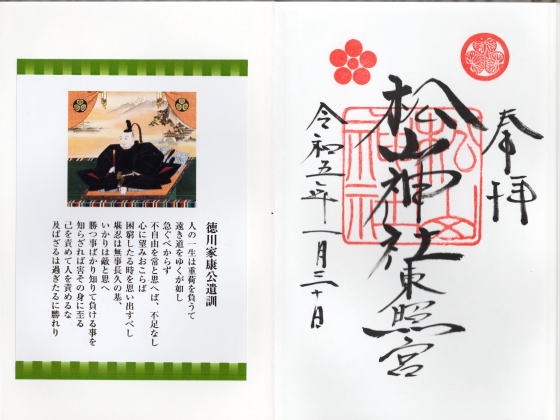 奉拝
松山神社東照宮
松山神社
令和五年一月三十日
徳川家康公遺訓
人の一生は重荷を負うて
遠き道をゆくが如し
急ぐべからず
不自由を常と思へば、不足なし
心に望みおこらば
困窮したる時を思い出すべし
堪忍は無事長久の基、
いかりは敵と思へ
勝つ事ばかり知りて負ける事を
知らざれば害その身に至る
己を責めて人を責めるな
及ばざるは過ぎたるに勝れり